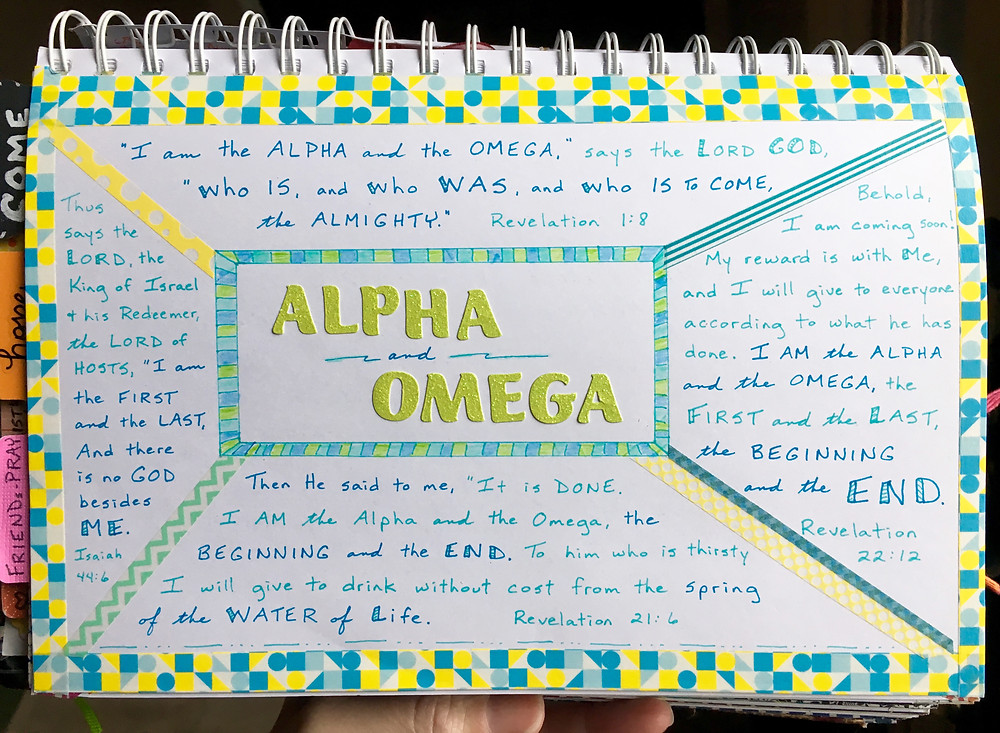 "I am the ALPHA and the OMEGA," says the LORD GOD,
"who IS, and who WAS, and who IS TO COME,
the ALMIGHTY." Revelation 1:8
Thus
says the
LORD, the
King of Israel
+ his Redeemer,
the LORD of
HOSTS, "I am
the FIRST
and the LAST,
And there
is no GOD
besides
ME.
Isaiah
44:6
ALPHA
and
OMEGA
Behold,
I am coming soon!
My reward is with Me,
and I will give to everyone
according to what he has
done. I AM the ALPHA
and the OMEGA, the
FIRST and the LAST,
the BEGINNING
and the END.
Revelation
22:12
Then He said to me, "It is DONE.
I AM the Alpha and the Omega, the
BEGINNING and the END. To him who is thirsty
I will give to drink without cost from the spring
of the WATER of Life.
Revelation 21:6
COME
hope
FRIENDS-PRAY
1ST